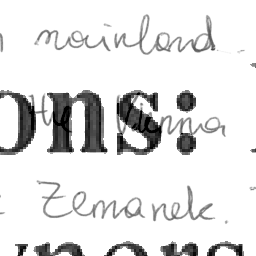 mainland
ons:
the Vienna
Zemanek.